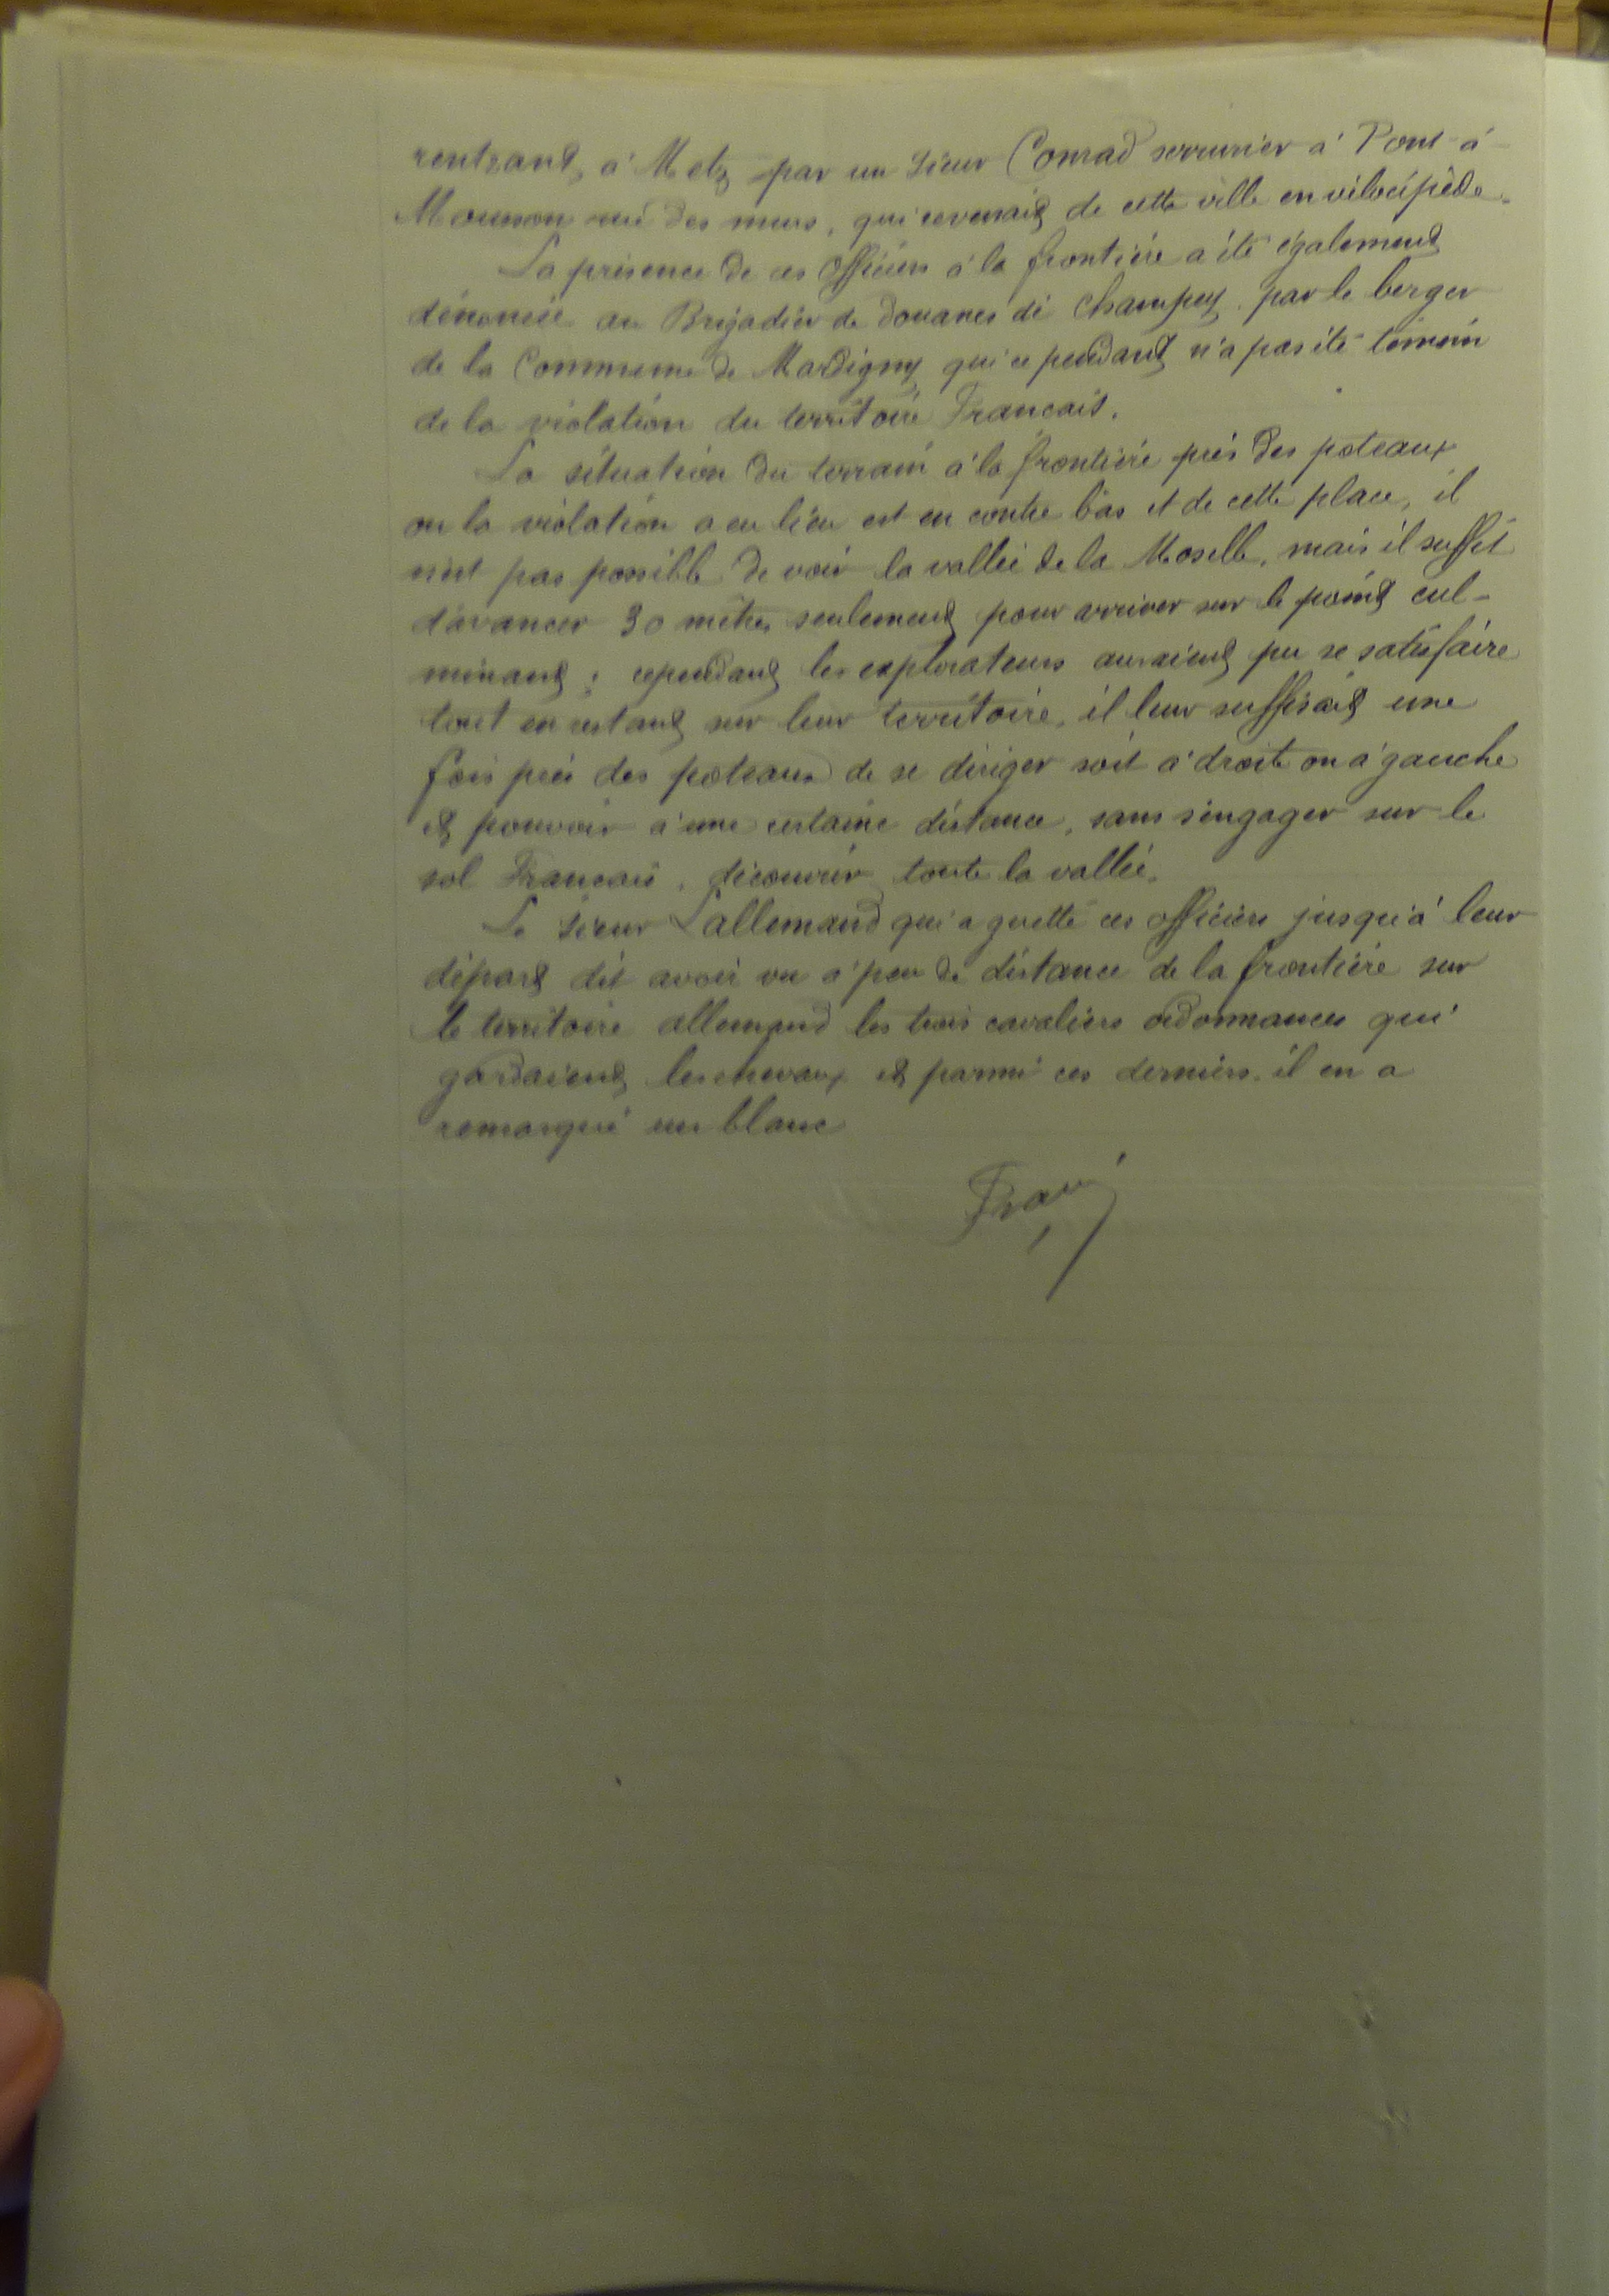 rentrant, à Metz par un sieur Conrad serrurier à Pont-à-
Mousson rue des murs, qui revenait de cette ville en vélocipède.
La présence de ces officiers à la frontière a été également
dénoncée au Brigadier de Douanes de Champey par le berger
de la Commune de Mardigny qui cependant n'a pas été témoin
de la violation du territoire Francais.
La situation du terrain à la frontière près des poteaux
ou la violation a eu lieu est en contre bas et de cette place, il
n'est pas possible de voir la vallée de la Moselle, mais il suffit
d'avancer 30 mètres seulement pour arriver sur le point cul-
minant ; cependant les explorateurs auraient pu se satisfaire
tout en restant sur leur territoire, il leur suffisait une
fois près des poteaux de se diriger soit à droite ou à gauche
et pouvoir à une certaine distance, sans s'engager sur le
sol Francais, découvrir toute la vallée.
Le sieur Lallemand qui a guetté ces officiers jusqu'à leur
départ dit avoir vu à peu de distance de la frontière sur
le territoire allemand les trois cavaliers ordonnances qui
gardaient les chevaux et parmi ces derniers il en a
remarqué un blanc